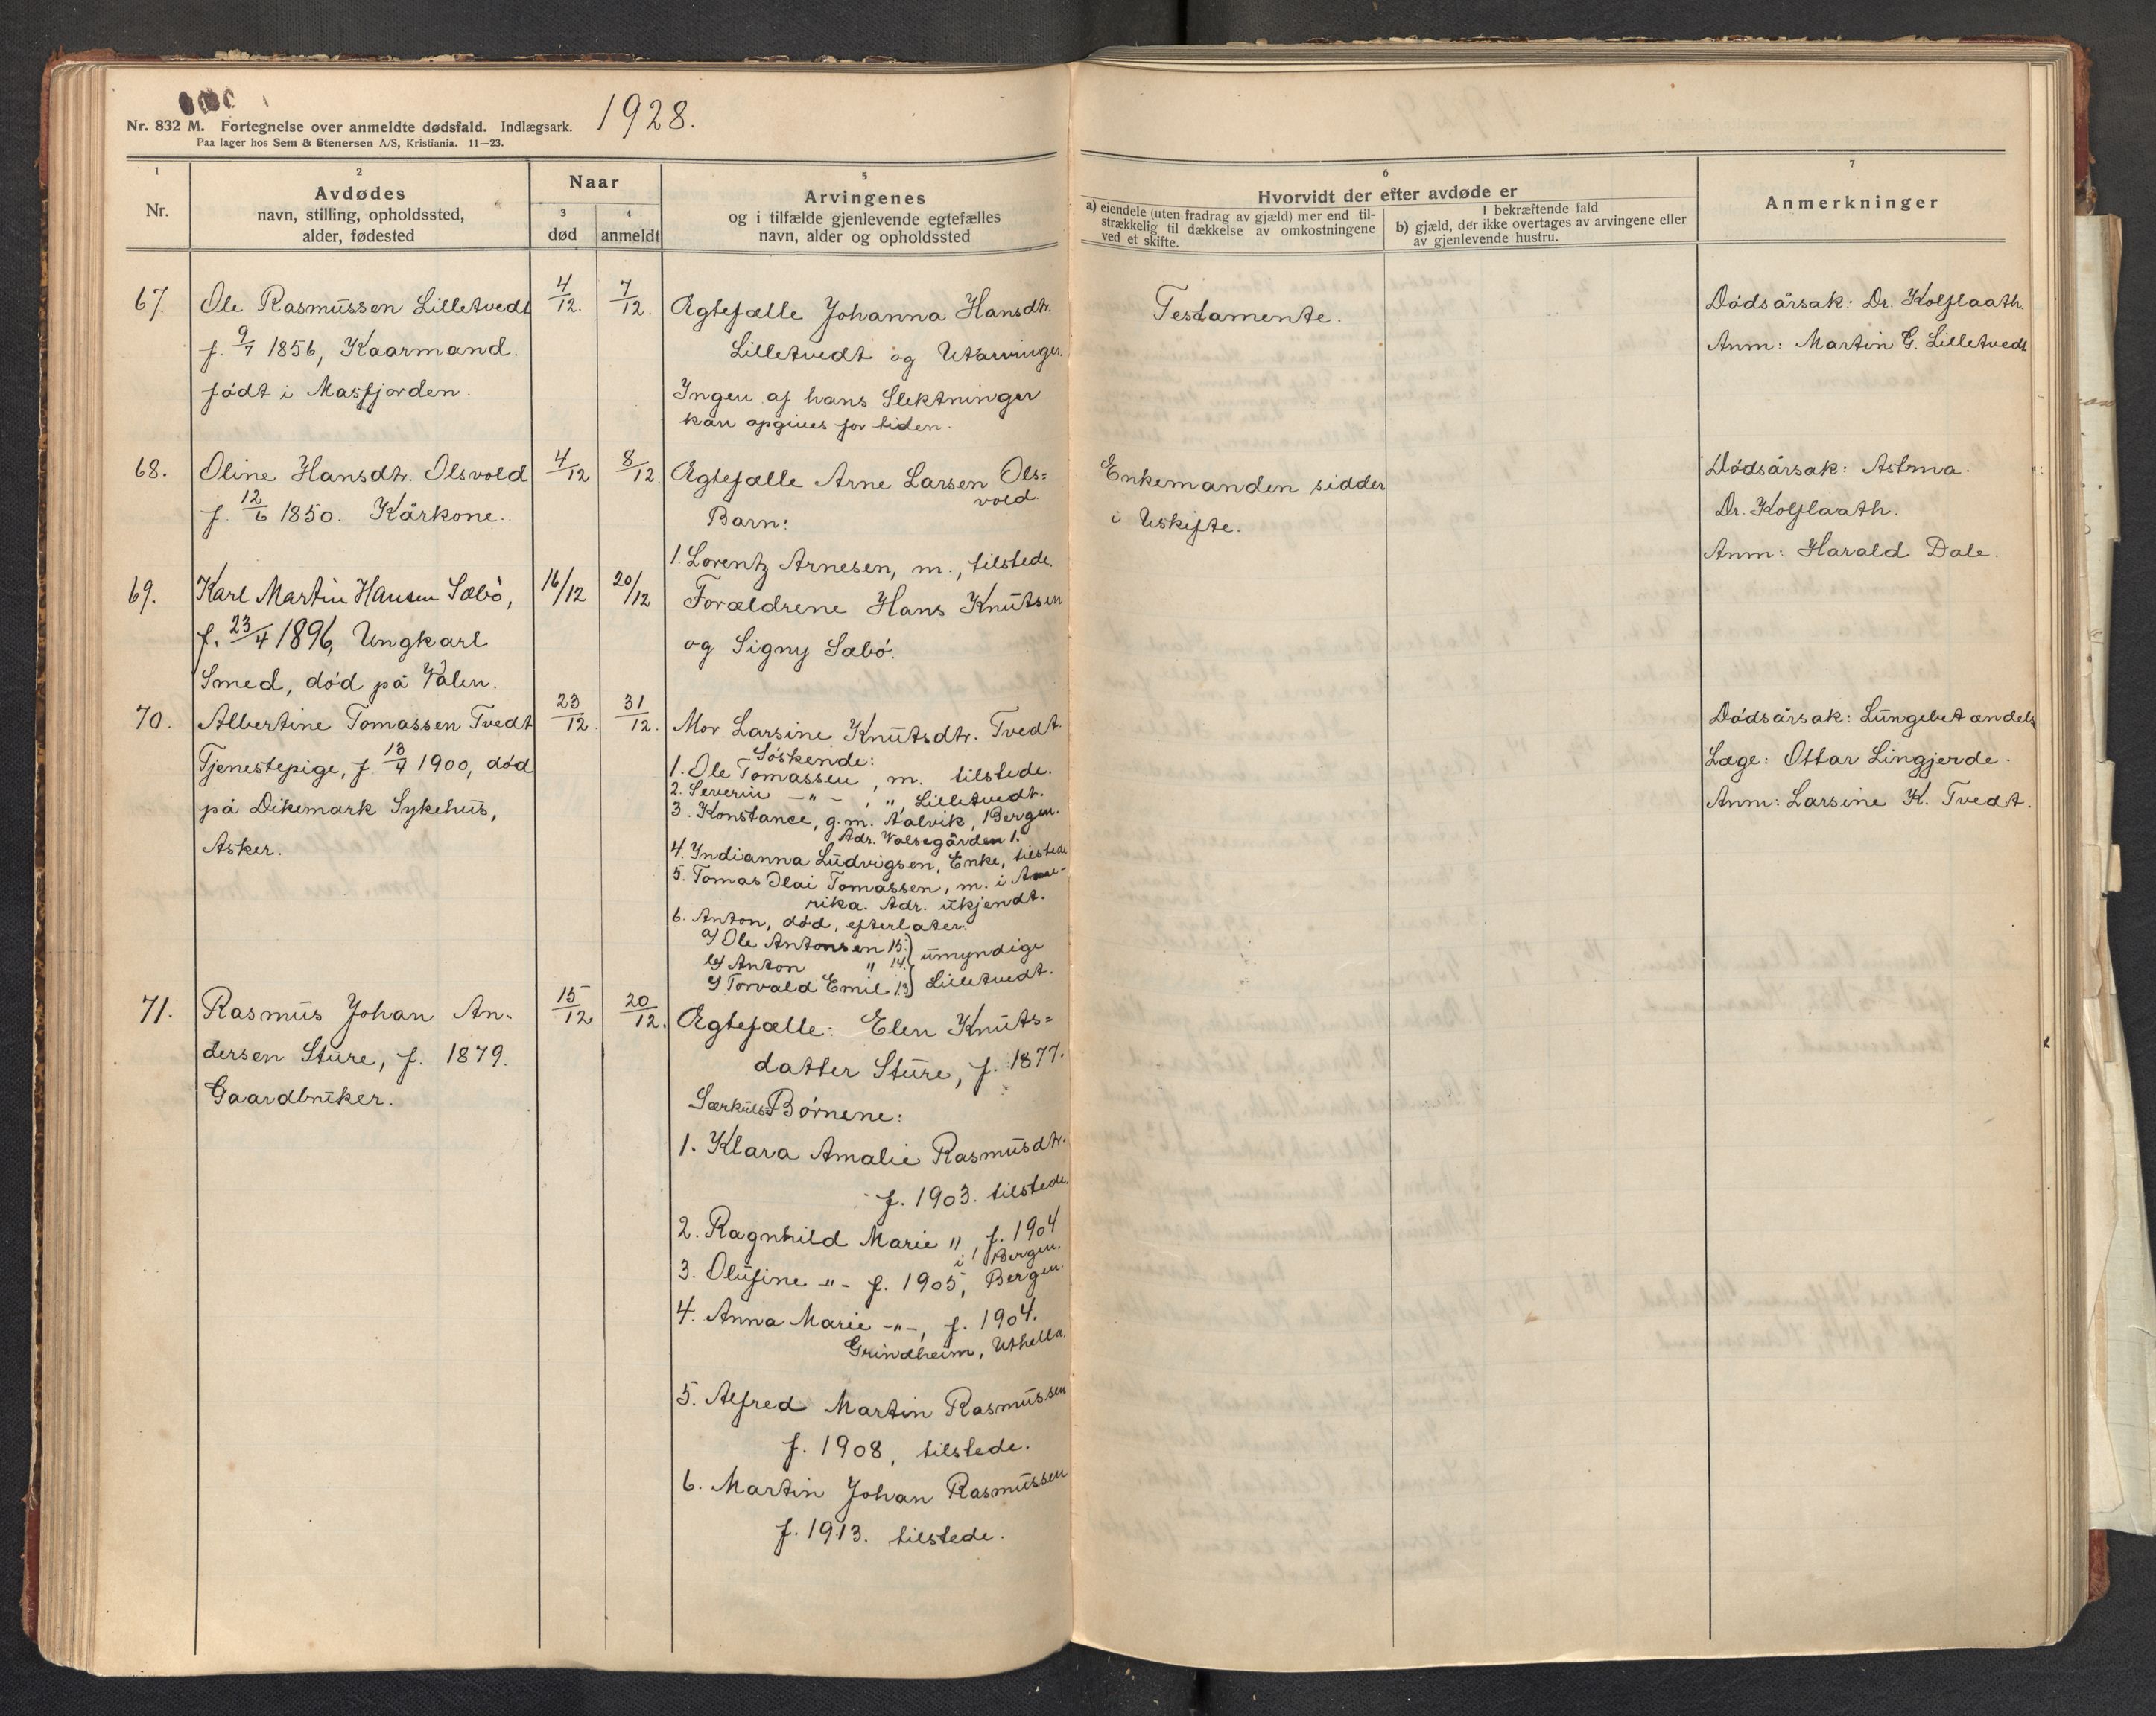 Nr. 832 M. Fortegnelse over anmeldte dødsfald. Indlægsark.
Paa lager hos Sem & Stenersen A/S, Kristiania. 11—23.
1928.
1
Nr.
2
Avdødes
navn, stilling, opholdssted,
alder, fødested
Naar
3
død
4
anmeldt
5
Arvingenes
og i tilfælde gjenlevende egtefælles
navn, alder og opholdssted
6
Hvorvidt der efter avdøde er
a) eiendele (uten fradrag av gjæld) mer end til-
strækkelig til dækkelse av omkostningene
ved et skifte.
I bekræftende fald
b) gjæld, der ikke overtages av arvingene eller
av gjenlevende hustru.
7
Anmerkninger
67.
Ole Rasmussen Lilletvedt
f. 9/7 1856, Kaarmand.
født i Masfjorden.
4/12.
7/12.
Egtefælle Johanna Hansdtr.
Lilletvedt og Utarvinger.
Ingen af hans Slektninger
kan opgives for tiden.
Testamente.
Dødsårsak: Dr. Kolflaath.
Anm: Martin G. Lilletvedt
68.
Oline Hansdtr. Olsvold
f. 12/6 1850. Kårkone.
4/12
8/12.
Egtefælle Arne Larsen Ols=
vold.
Barn:
1. Lorentz Arnesen, m., tilstede.
Enkemanden sidder
i Uskifte.
Dødsårsak: Astma.
Dr. Kolflaath.
Anm: Harald Dale.
69.
Karl Martin Hansen Sæbø,
f. 23/4 1896, Ungkarl
Smed, død på Valen.
16/12
20/12
Forældrene Hans Knutsen
og Signy Sæbø.
70.
Albertine Tomassen Tvedt
Tjenestepige, f. 13/4 1900, død
på Dikemark Sykehus,
Asker.
23/12.
31/12.
Mor Larsine Knutsdtr. Tvedt.
Søskende:
1. Ole Tomassen, m. tilstede.
2. Severin —"— , ", Lilletvedt.
3. Konstance, g.m. Aalvik, Bergen.
Adr. Valsegården 1.
4. Indianna Ludvigsen, Enke, tilstede
5. Tomas Olai Tomassen, m. i Ame-
rika. Adr. ukjendt.
6. Anton, død, efterlater:
a) Ole Antonsen 15.
b) Anton " 14.
c) Torvald Emil 13
umyndige
Lilletvedt.
Dødsårsak: Lungebetændels
Læge: Ottar Lingjerde.
Anm: Larsine K. Tvedt.
71.
Rasmus Johan An-
dersen Sture, f. 1879.
Gaardbruker.
15/12
20/12.
Egtefælle: Elen Knuts=
datter Sture, f. 1877.
Særkuls Børnene:
1. Klara Amalie Rasmusdtr.
f. 1903. tilstede.
2. Ragnhild Marie ", f. 1904
i Bergen.
3. Olufine —"— f. 1905, Bergen.
4. Anna Marie —"—, f. 1904.
Grindheim, Uthella.
5. Alfred Martin Rasmussen
f. 1908, tilstede.
6. Martin Johan Rasmussen
f. 1913. tilstede.